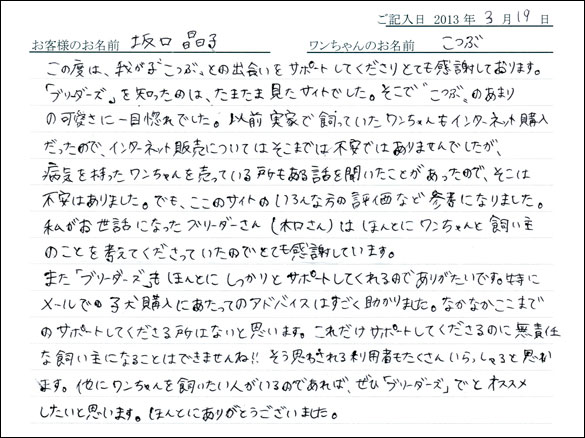 ご記入日 2013年 3月19日
お客様のお名前 坂口 晶子 ワンちゃんのお名前 こつぶ
この度は、我が子"こつぶ"との出会いをサポートしてくださりとても感謝しております。
「ブリーダーズ」を知ったのは、たまたま見たサイトでした。そこで"こつぶ"のあまり
の可愛さに一目惚れでした。以前実家で飼っていたワンちゃんもインターネット購入
だったので、インターネット販売についてはそこまでは不安ではありませんでしたが、
病気を持ったワンちゃんを売っている所もある話を聞いたことがあったので、そこは
不安はありました。でも、ここのサイトのいろんな方の評価など参考になりました。
私がお世話になったブリーダーさん(木口さん)はほんとにワンちゃんと飼い主
のことを考えてくださっていたのでとても感謝しています。
また「ブリーダーズ」もほんとにしっかりとサポートしてくれるのでありがたいです。特に
メールでの子犬購入にあたってのアドバイスはすごく助かりました。なかなかここまで
のサポートしてくださる所はないと思います。これだけサポートしてくださるのに無責任
な飼い主になることはできませんね!! そう思わされる利用者もたくさんいらっしゃると思い
ます。他にワンちゃんを飼いたい人がいるのであれば、ぜひ「ブリーダーズ」でとオススメ
したいと思います。ほんとにありがとうございました。